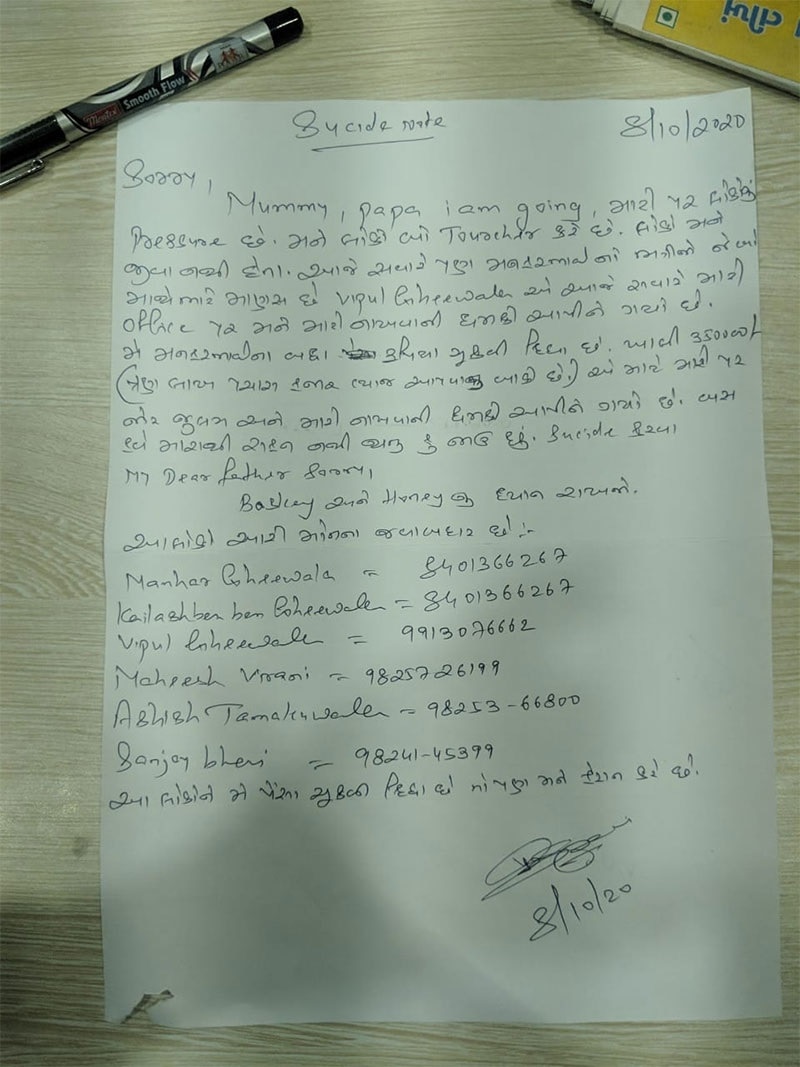 Sucide note 8/10/2020
Sorry,
Mummy, papa i am going, મારી પર લોકોનું
Pressure છે. મને લોકો બૌ Tourcher કરે છે. લોકો મને
જીવા નથી દેતા. આજે સવારે પણ મનહરભાઈ નો ભત્રીજો જેવો
માણસ છે Vipul Gheewala એ આજે સવારે મારી
Office પર મને મારી નાખવાની ધમકી આપીને ગયો છે.
મે મનહરભાઈના બધા રૂપિયા ચુકવી દિધા છે. ખાલી 350000/-
(ત્રણ લાખ પચાસ હજાર વ્યાજ આપવાનુ બાકી છે.) એ માટે મારી પર
જોર જુલમ અને મારી નાખવાની ધમકી આપીને ગયો છે. બસ
હવે મારાથી સહન નથી થાતુ હું જાઉ છું. Sucide કરવા
My Dear father Sorry,
અને Honey નુ ધ્યાન રાખજો.
આ લોકો મારી મોતના જવાબદાર છે :-
Manhar Gheewala = 8401366267
Kailashben ben Gheewala = 8401366267
Vipul Gheewala = 9913076662
Maheesh Virani = 9825726199
Ashish Tamakuwala = 98253-66800
Sanjay bhai = 98241-45399
આ લોકોને મે પૈસા ચુકવી દિધા છે તો પણ મને હેરાન કરે છે.
8/10/20
Montex Smooth Flow